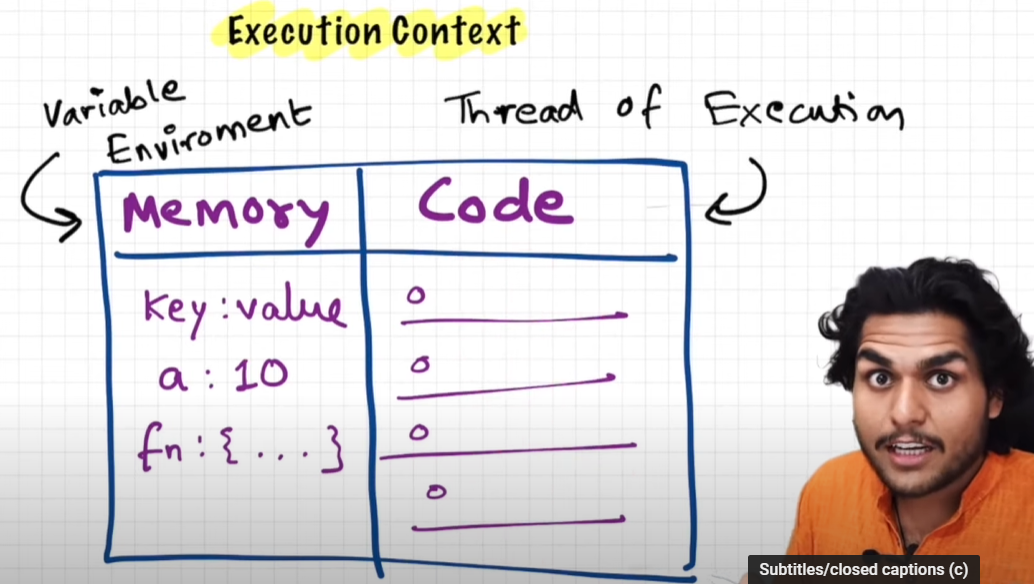 Execution Context
Variable
Enviroment
Thread of Execution
Memory
Code
key : value
a : 10
fn : { . . . }
Subtitles/closed captions (c)